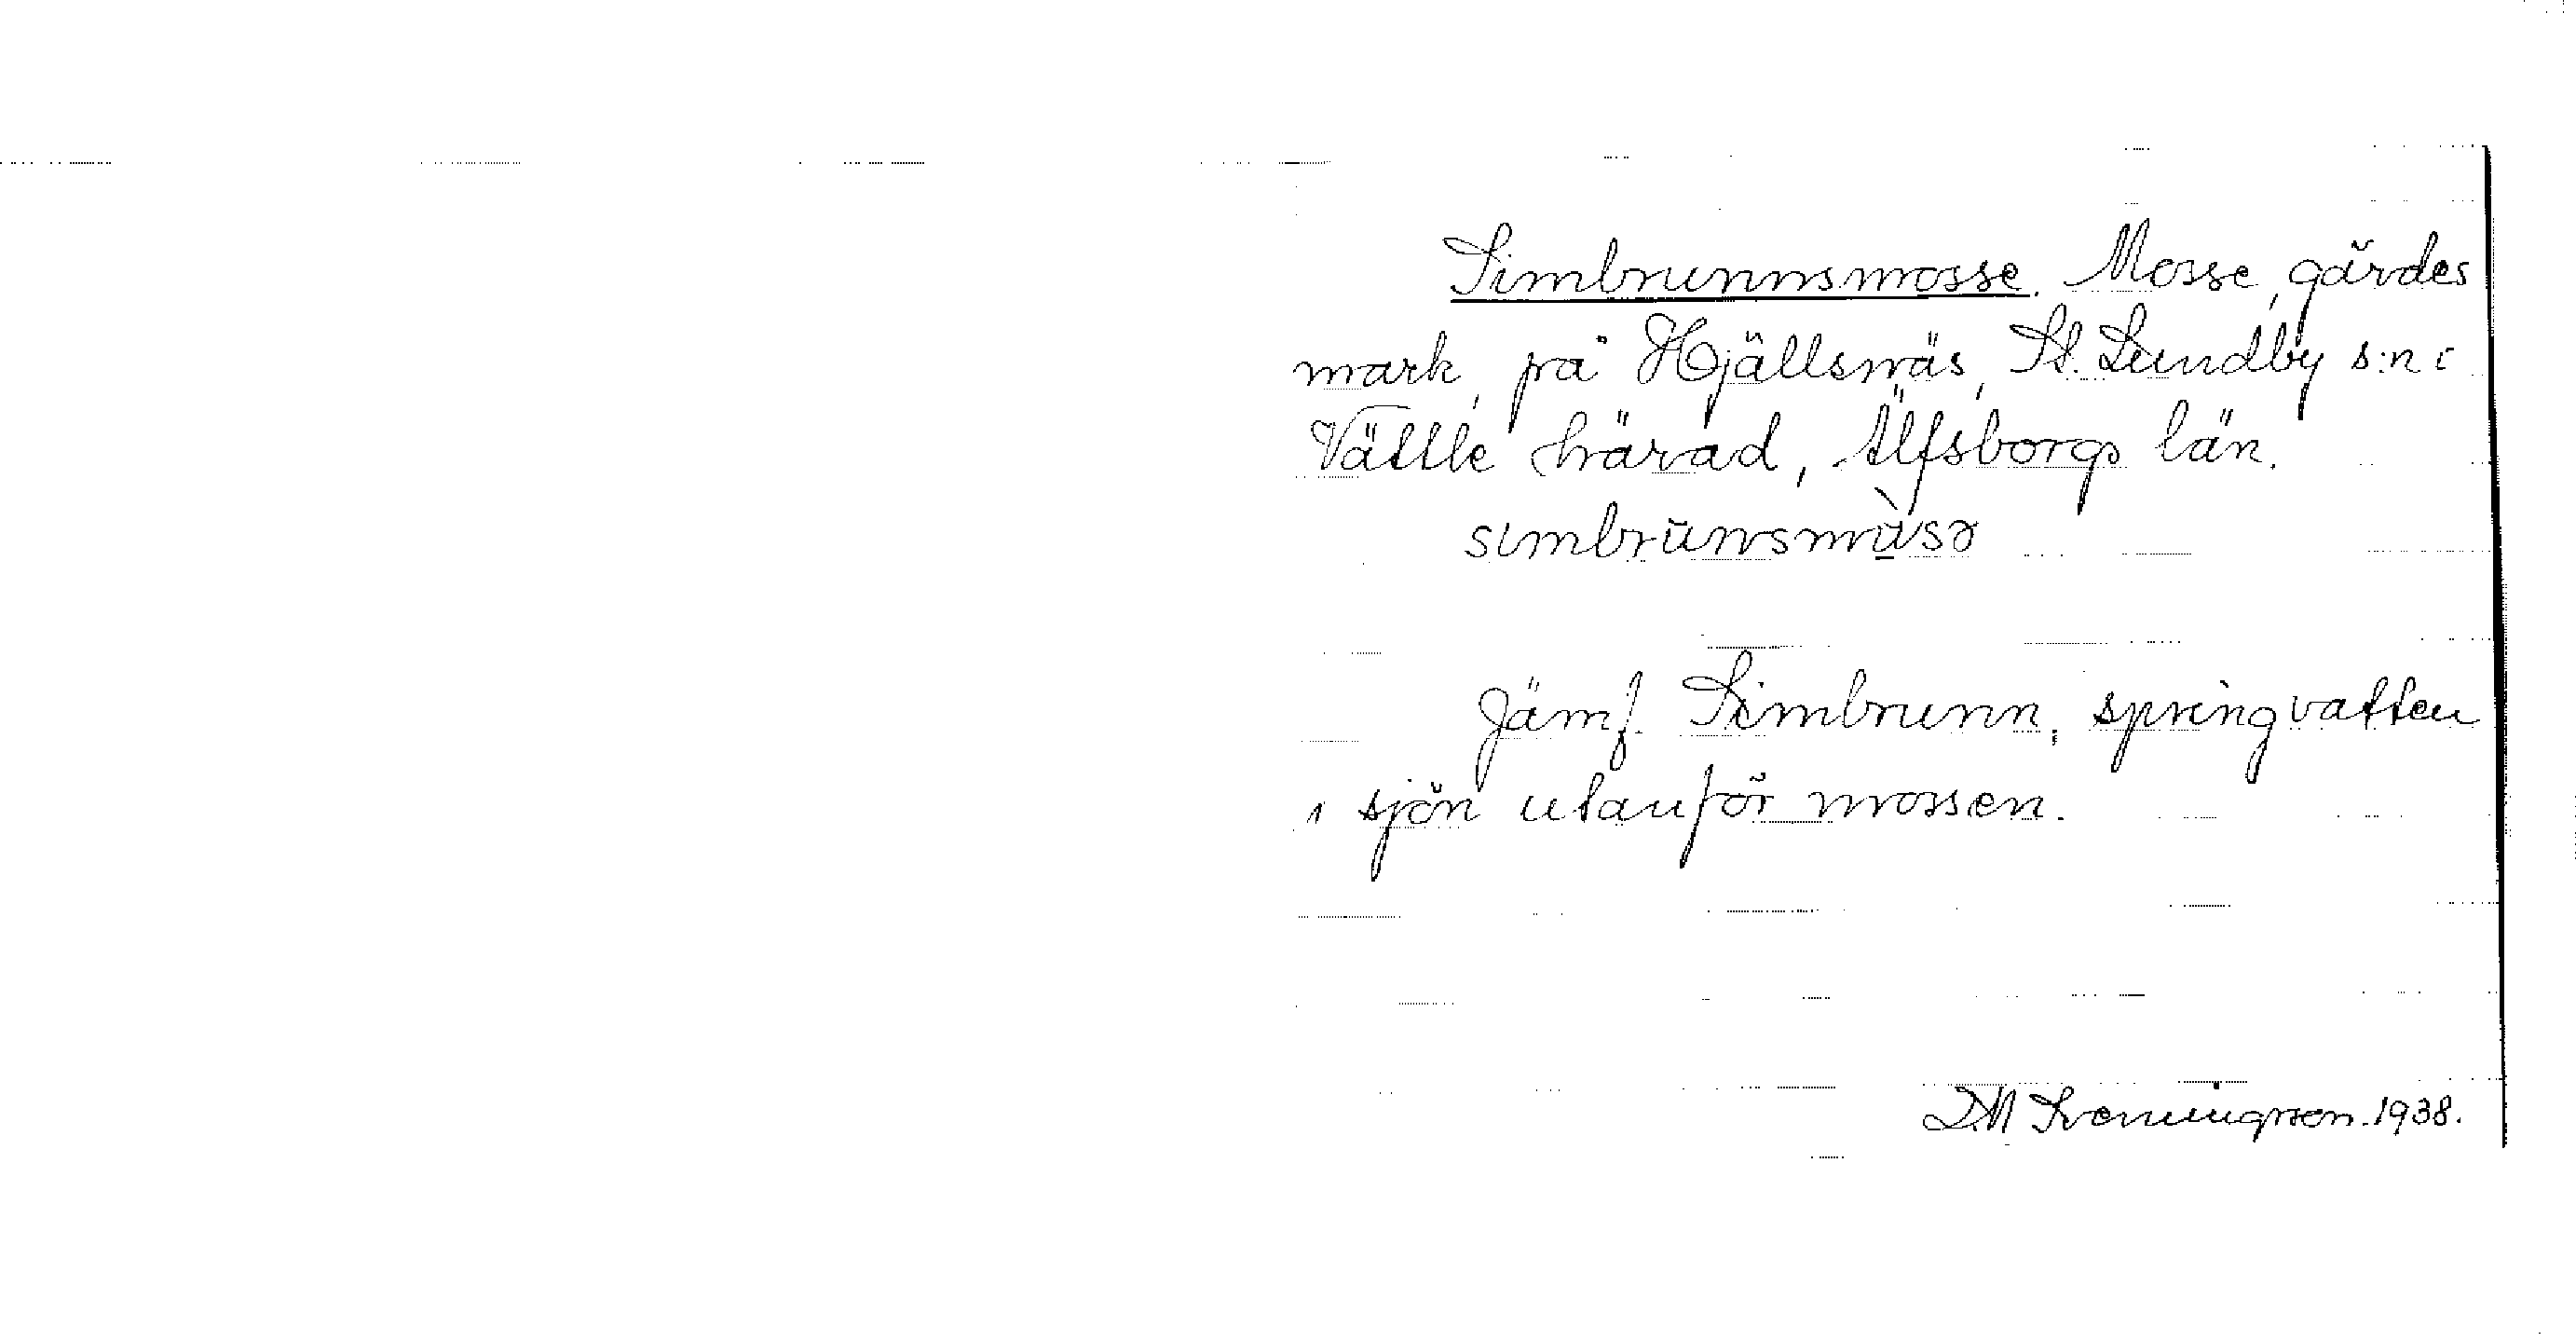 Simbrunnsmosse. Mosse, gärdes
mark, på Hjällsnäs, St. Lundby s:n i
Vättle härad, Älfsborgs län.
simbrunsmùsə
Jämf. Simbrunn, springvatten
i sjön utanför mossen.
1938.